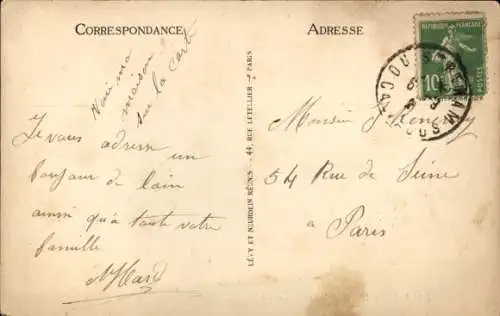 CORRESPONDANCE
ADRESSE
Voici ma
maison
sur la carte
Je vous adresse un
bonjour de loin
ainsi qu'à toute votre
famille
LÉVY ET NEURDEIN RÉUNIS - 44, RUE LETELLIER - PARIS
RÉPUBLIQUE FRANÇAISE
10
POSTES
Monsieur
54 Rue de Seine
à
Paris